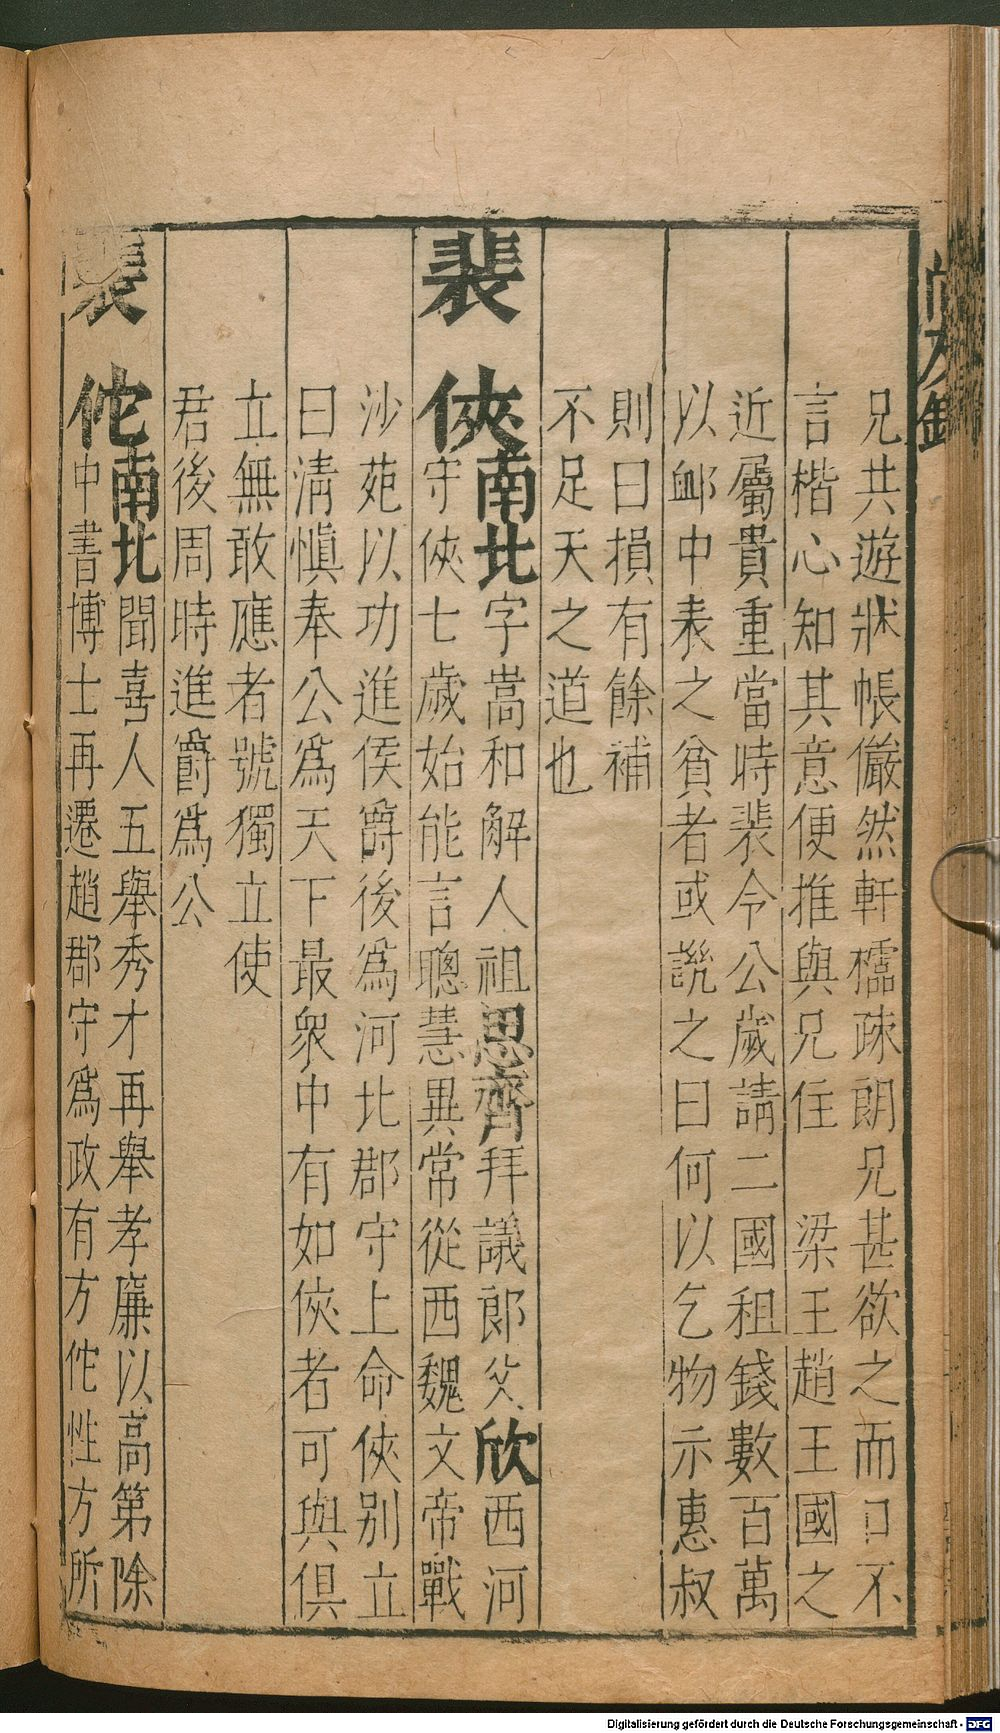 兄共遊牀帳儼然軒櫺疎朗兄甚欲之而口不
言楷心知其意便推與兄住　梁王趙王國之
近屬貴重當時裴令公歲請二國租錢數百萬
以卹中表之貧者或説之曰何以乞物示惠叔
則曰損有餘補
不足天之道也
裴俠南北字嵩和解人祖思齊拜議郎父欣西河
守俠七歲始能言聰慧異常從西魏文帝戰
沙苑以功進侯爵後為河北郡守上命俠别立
曰清慎奉公為天下最衆中有如俠者可與俱
立無敢應者號獨立使
君後周時進爵為公
裴佗南北聞喜人五舉秀才再舉孝廉以高第除
中書博士再遷趙郡守為政有方佗性方所
Digitalisierung gefördert durch die Deutsche Forschungsgemeinschaft - DFG